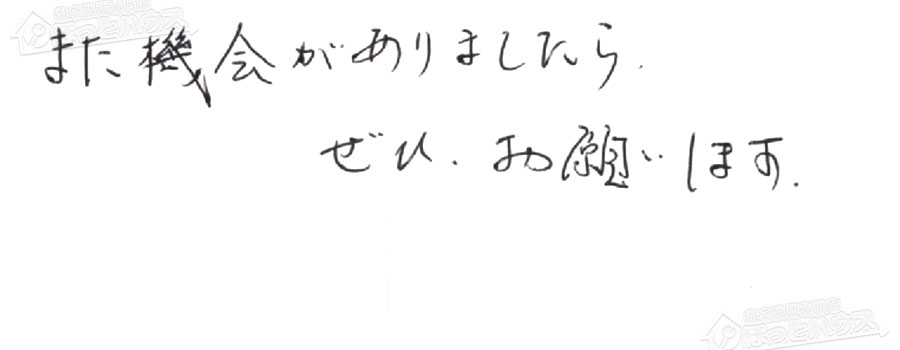 また機会がありましたら.
ぜひ.お願いします.
ほっとハウス
ほっとハウス